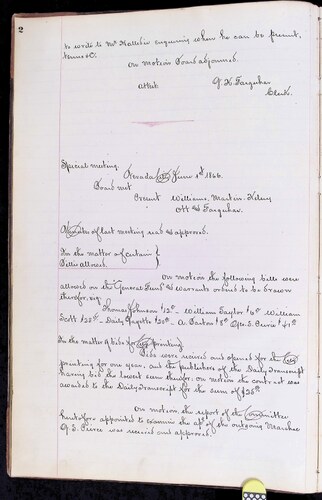 2
to write to Mr Hallidie enquiring when he can be present,
terms &c.
On motion Board adjourned.
attest
G. K. Farquhar
Clerk.
Special meeting.
Nevada City June 1st 1866.
Board met
Present Williams, Martin, Kelsey
Ott & Farquhar.
Minutes of last meeting read & approved.
In the matter of certain }
Bills allowed. }
On motion the following bills were
allowed on the General Fund & warrants ordered to be drawn
therefor, viz
Thomas Johnson $12.00 - William Taylor William
Scott - Daily Gazette - A. Barton Geo. S. Peirce
In the matter of bids for City printing
Bids were received and opened for the City
printing for one year, and the publishers of the Daily Transcript
having bid the lowest sum therefor, on motion the contract was
awarded to the Daily Transcript for the sum of
On motion, the report of the committee
heretofore appointed to examine the of the outgoing Marshal
G. S. Peirce was received and approved.